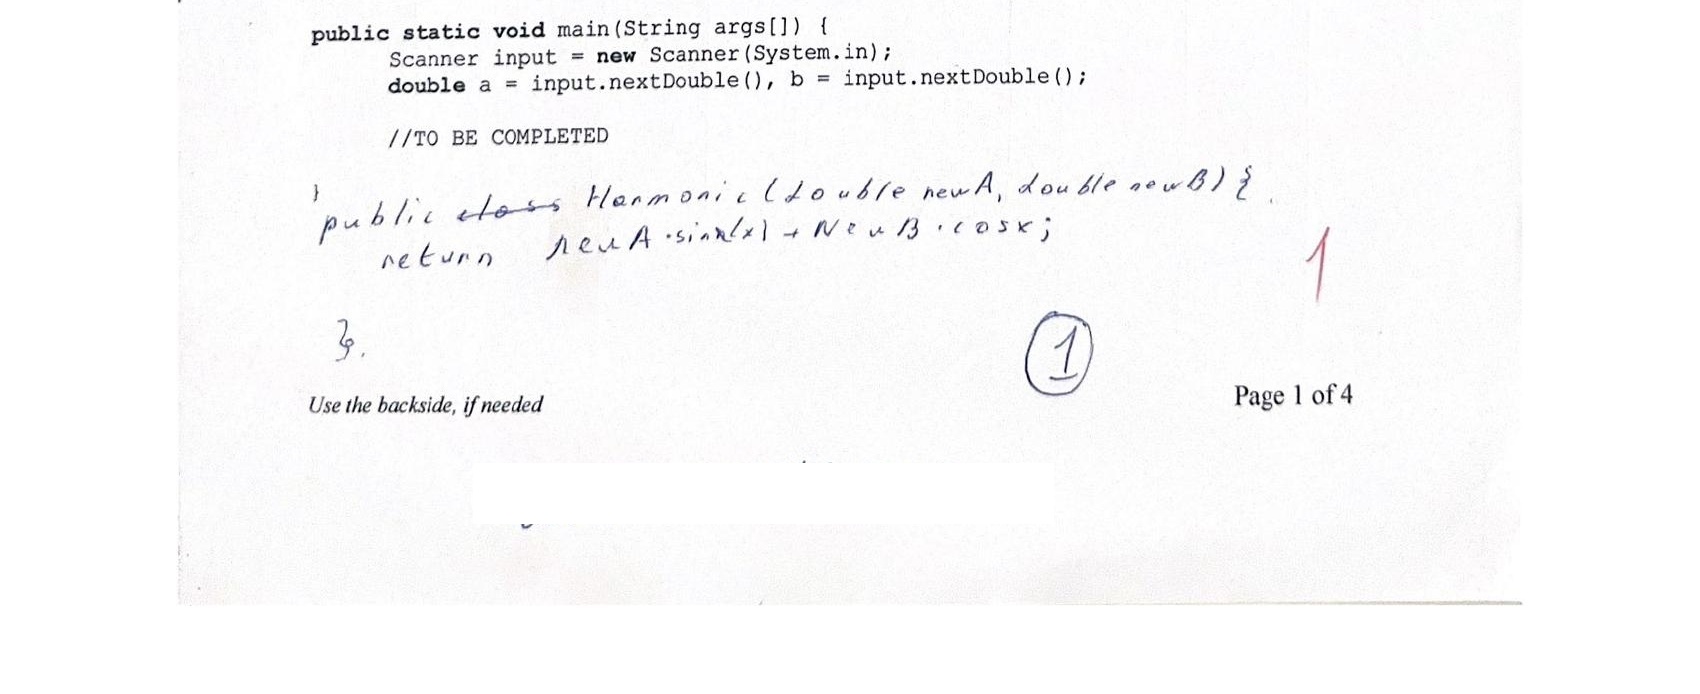 public static void main(String args[]) {
Scanner input = new Scanner(System.in);
double a = input.nextDouble(), b = input.nextDouble();
//TO BE COMPLETED
}
public class Harmonic (double newA, double newB) {
return newA · sin(x) + NewB · cosx;
1
}.
1
Use the backside, if needed
Page 1 of 4